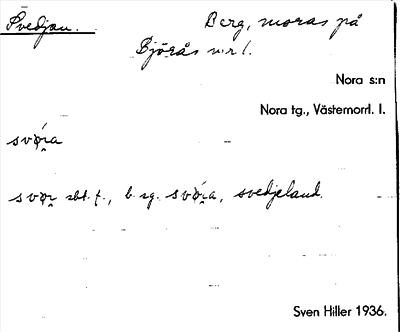 Svedjan. Berg, moras på
Björås nr 1.
Nora s:n
Nora tg., Västernorrl. l.
svø̀ra
svør sbt. f., b. sg. svø̀ra, svedjeland.
Sven Hiller 1936.